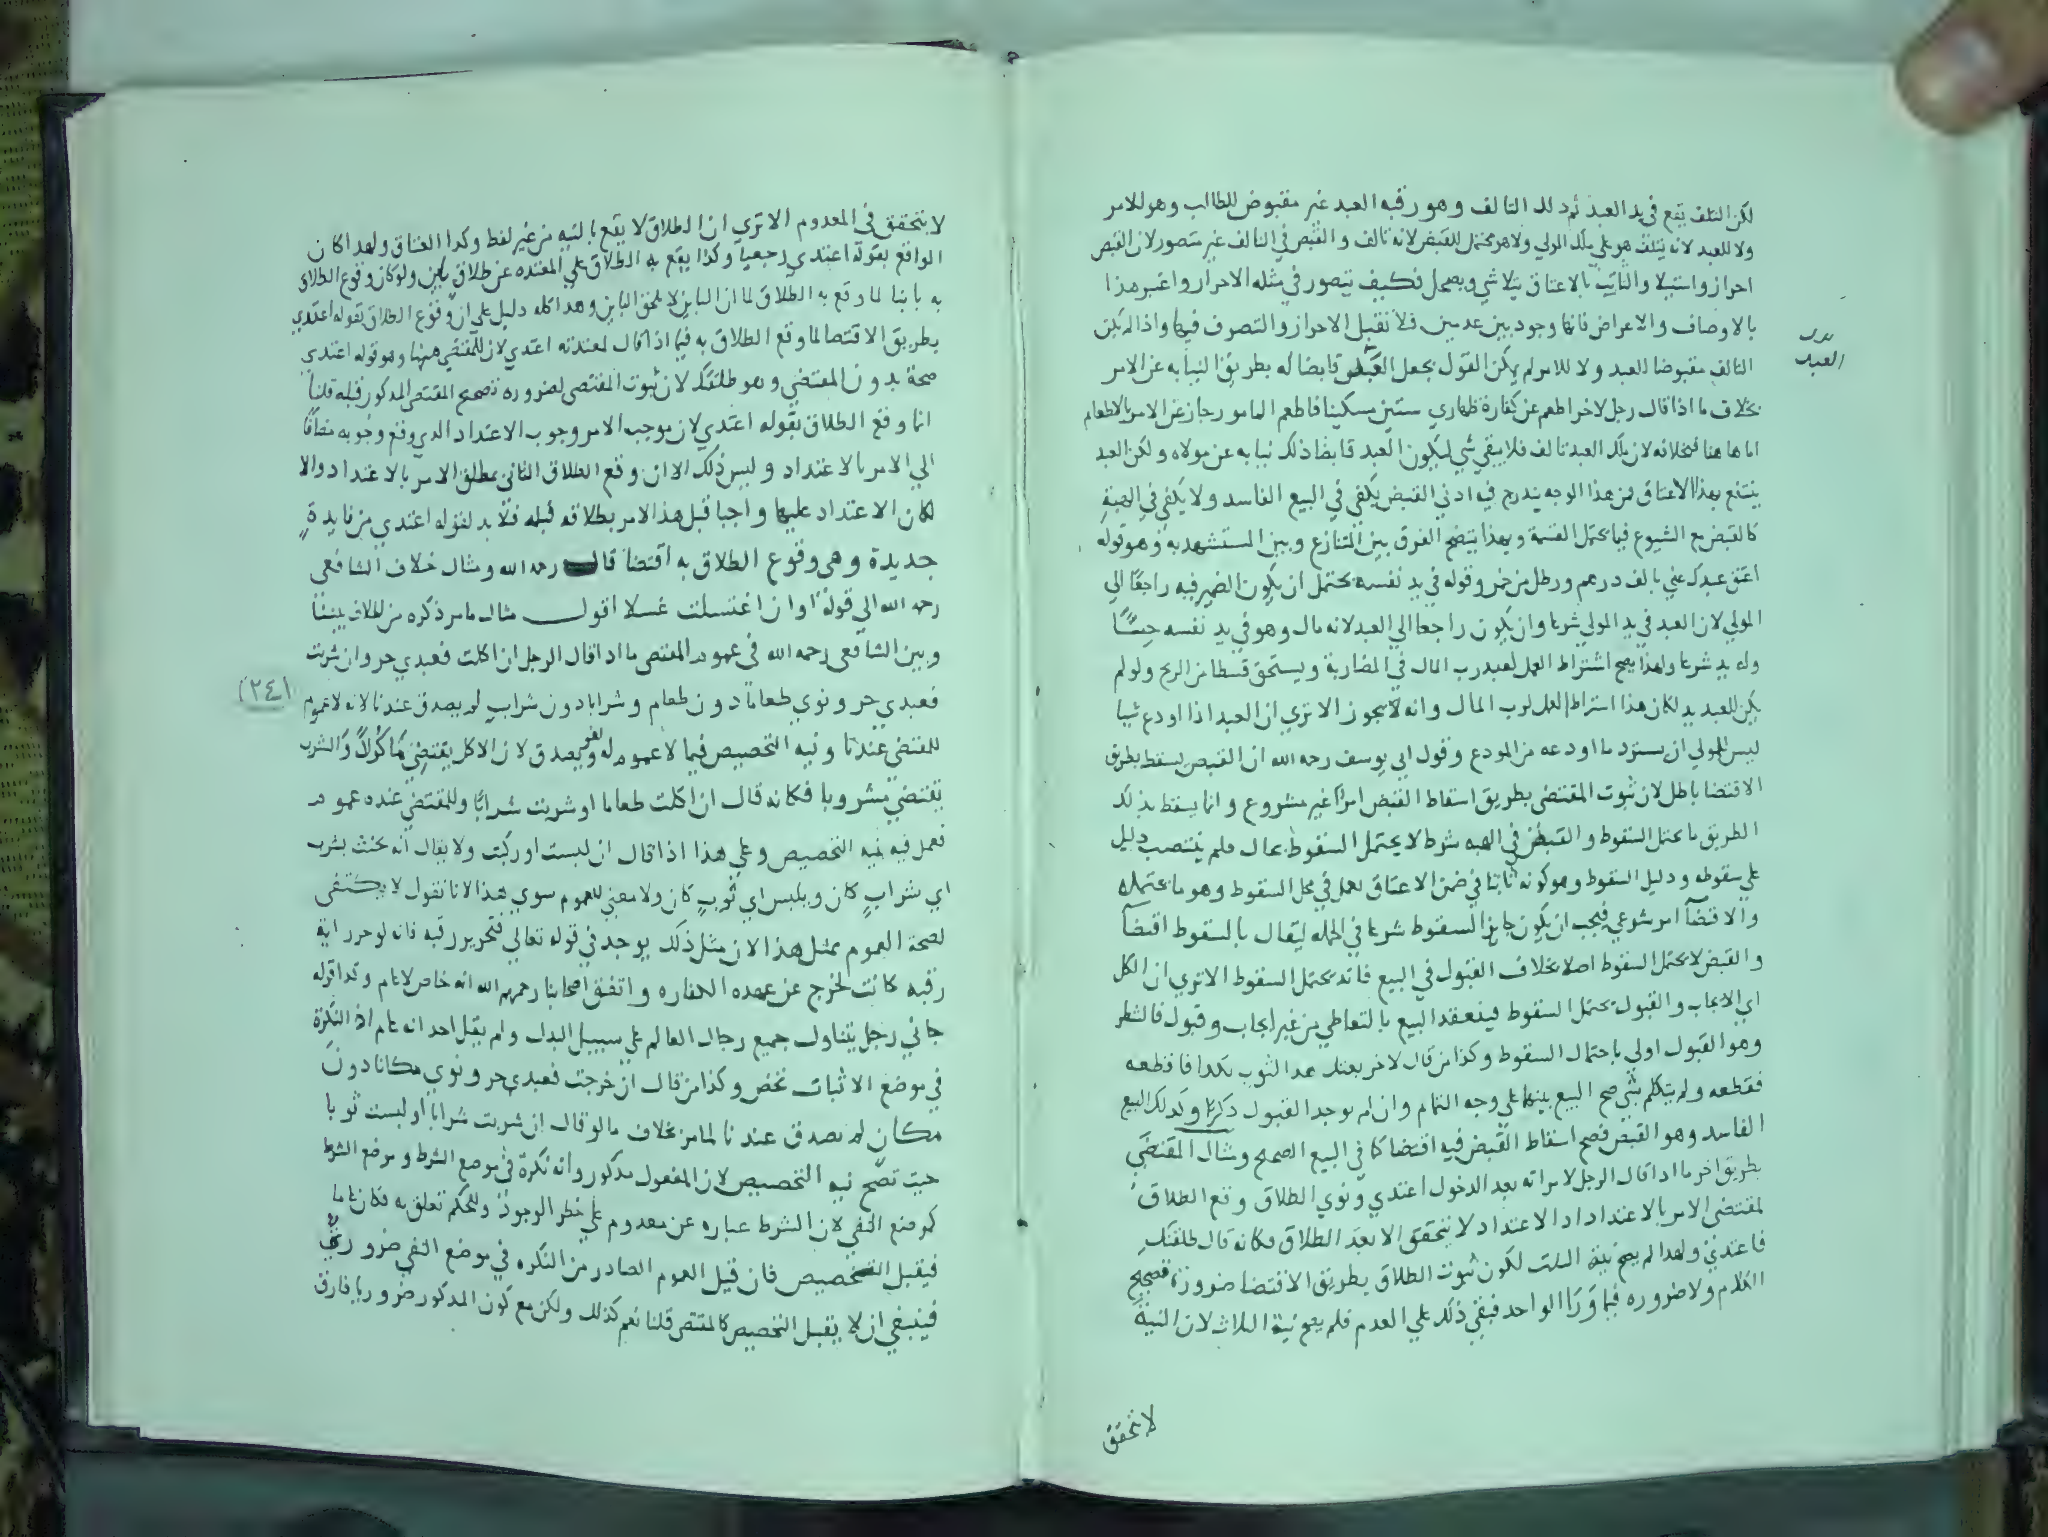 لكن التلف يقع في يد العبد ثم ذلك التالف وهو رقبه العبد غير مقبوض للطالب وهو للامر
ولا للعبد لانه يتلف هو على ملك المولي ولا هو محتمل للقبض لانه تالف والقبض في التالف غير متصور لان القبض
احراز واستيلا والثابت بالاعتاق يتلاشي ويضمحل فكيف يتصور في مثله الاحراز واعتبر هذا
بالاوصاف والاعراض فانها وجود بين عدمين فلا تقبل الاحراز والتصرف فيها واذا لم يكن
التالف مقبوضا للعبد ولا للامر لم يكن القول بجعل العبد قابضا له بطريق النيابه عن الامر
بدل
العبد
بخلاف ما اذا قال رجل لاخر اطعم عن كفارة ظهاري ستين مسكينا فاطعم المامور جاز عن الامر بالاطعام
اما ها هنا فبخلافه لان ملك العبد تالف فلا يبقي شي ليكون العبد قابضا ذلك نيابه عن مولاه ولكن العبد
ينتفع بهذا الاعتاق فمن هذا الوجه يندرج فيه ادني القبض يكفي في البيع الفاسد ولا يكفي في الهبة
كالقبض مع الشيوع فيما يحتمل القسمة وبهذا يتضح الفرق بين المتنازع وبين المستشهد به وهو قوله
اعتق عبدك عني بالف درهم ورطل من خمر وقوله في يد نفسه يحتمل ان يكون الضمير فيه راجعا الي
المولي لان العبد في يد المولي شرعا وان يكون راجعا الي العبد لانه مال وهو في يد نفسه حسًا
وله يد شرعا ولهذا يصح اشتراط العمل لعبد رب المال في المضاربة ويستحق قسطا من الربح ولو لم
يكن للعبد يد لكان هذا اشتراط العمل لرب المال وانه لا يجوز الا تري ان العبد اذا اودع شيا
ليس للمولي ان يسترد ما اودعه من المودع وقول ابي يوسف رحه الله ان القبض يسقط بطريق
الاقتضا باطل لان ثبوت المقتضى بطريق اسقاط القبض امرًا غير مشروع وانما يسقط بذلك
الطريق ما يحتمل السقوط والقبض في الهبه شرط لا يحتمل السقوط بحال فلم ينتصب دليل
علي سقوطه ودليل السقوط وهو كونه ثابتا في ضمن الاعتاق يعمل في محل السقوط وهو ما يحتمله
والاقتضآ امر شرعي فيجب ان يكون جايز السقوط شرعا في الجمله ليقال بالسقوط اقتضآ
والقبض لا يحتمل السقوط اصلا بخلاف القبول في البيع فانه يحتمل السقوط الا تري ان الكل
اي الايجاب والقبول يحتمل السقوط فينعقد البيع بالتعاطي من غير ايجاب وقبول فالشطر
وهو القبول اولي باحتمال السقوط وكذا من قال لاخر بعتك هذا الثوب بكذا فاقطعه
فقطعه ولم يتكلم بشي صح البيع بينهما علي وجه التمام وان لم يوجد القبول ذكرًا وكذلك البيع
الفاسد وهو القبض فصح اسقاط القبض فيه اقتضا كما في البيع الصحيح ومثال المقتضَي
بطريق اخر ما اذا قال الرجل لامراته بعد الدخول اعتدي ونوي الطلاق وقع الطلاق
لمقتضى الامر بالاعتداد اذ الاعتداد لا يتحقق الا بعد الطلاق فكانه قال طلقتك
فاعتدي ولهذا لم يصح نية الثلث لكون ثبوت الطلاق بطريق الاقتضا ضرورة تصحيح
الكلام ولا ضروره فيما وَرَا الواحد فبقي ذلك علي العدم فلم يصح نية الثلاث لان النية
لا تتحقق
لا تتحقق في المعدوم الا تري ان الطلاق لا يقع بالنيه من غير لفظ وكذا العتاق ولهذا كان
الواقع بقوله اعتدي رجعيا وكذا يقع به الطلاق علي المعتده عن طلاق باين ولو كان وقوع الطلاق
به باينا لما وقع به الطلاق لما ان الباين لا يلحق الباين وهذا كله دليل علي ان وقوع الطلاق بقوله اعتدي
بطريق الاقتضا لما وقع الطلاق به فيما اذا قال لمعتدته اعتدي لان للمقتضي ههنا وهو قوله اعتدي
صحة بدون المقتضي وهو طلقتك لان ثبوت المقتضى لضروره تصحيح المقتضي المذكور قبله قلنا
انما وقع الطلاق بقوله اعتدي لان موجب الامر وجوب الاعتداد الذي وقع وجوبه مضافًا
الي الامر بالاعتداد وليس ذلك الا ان وقع الطلاق الثاني بمطلق الامر بالاعتداد والا
لكان الاعتداد عليها واجبا قبل هذا الامر بطلاقه قبله فلا بد لقوله اعتدي من فايدةٍ
جديدة وهي وقوع الطلاق به اقتضا قال رحه الله ومثال خلاف الشافعي
رحه الله الي قوله او ان اغتسلت غسلا اقول مثال ما مر ذكره من الخلاف بيننا
وبين الشافعى رحمه الله في عموم المقتضي ما اذا قال الرجل ان اكلت فعبدي حر وان شربت
(٢٤١)
فعبدي حر ونوي طعاما دون طعام وشرابا دون شراب لم يصدق عندنا لانه لا عموم
للمقتضي عندنا ونيه التخصيص فيما لا عموم له لغو ويصدق لان الاكل يقتضي مأكولاً والشرب
يقتضي مشروبا فكانه قال ان اكلت طعاما او شربت شرابًا وللمقتضي عنده عموم
فعمل فيه نيه التخصيص وعلي هذا اذا قال ان لبست او ركبت ولا يقال انه يحنث بشرب
اي شرابٍ كان وبلبس اي ثوبٍ كان ولا معني للعموم سوي هذا لانا نقول لا يكتفى
لصحة العموم بمثل هذا لان مثل ذلك يوجد في قوله تعالي فتحرير رقبه فانه لو حرر اية
رقبه كانت لخرج عن عهده الكفاره واتفق اصحابنا رحمهم الله انه خاص لا عام وكذا قوله
جاني رجل يتناول جميع رجال العالم علي سبيل البدل ولم يقل احد انه عام اذ النكرة
في موضع الاثبات تخص وكذا من قال ان خرجت فعبدي حر ونوي مكانا دون
مكان لم يصدق عندنا لما مر بخلاف ما لو قال ان شربت شرابا او لبست ثوبا
حيث تصح نيه التخصيص لان المفعول مذكور وانه نكرة في موضع الشرط وموضع الشرط
كموضع النفي لان الشرط عباره عن معدوم علي خطر الوجود وللحكم تعلق به فكان عاما
فيقبل التخصيص فان قيل العموم الصادر من النكره في موضع النفي ضروري
فينبغي ان لا يقبل التخصيص كالمقتضي قلنا نعم كذلك ولكن مع كون المذكور ضروريا فارق